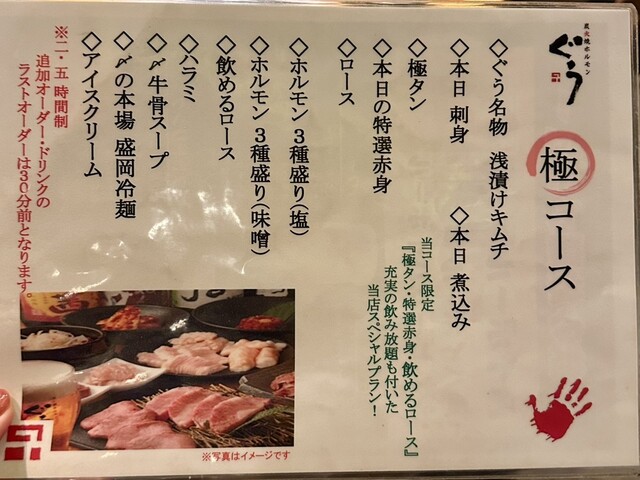 炭火焼ホルモン
ぐう
極コース
◇ぐう名物 浅漬けキムチ
◇本日 刺身 ◇本日 煮込み
◇極タン
◇本日の特選赤身
◇ロース
当コース限定
『極タン・特選赤身・飲めるロース』
充実の飲み放題も付いた
当店スペシャルプラン！
◇ホルモン３種盛り(塩)
◇ホルモン３種盛り(味噌)
◇飲めるロース
◇ハラミ
◇〆牛骨スープ
◇〆の本場 盛岡冷麺
◇アイスクリーム
※二・五時間制
追加オーダー・ドリンクの
ラストオーダーは30分前となります。
ぐう
※写真はイメージです